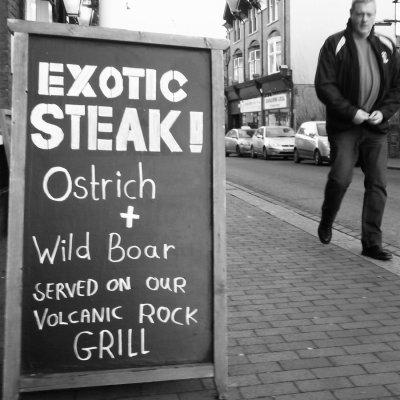 EXOTIC
STEAK!
Ostrich
+
Wild Boar
SERVED ON OUR
VOLCANIC ROCK
GRILL